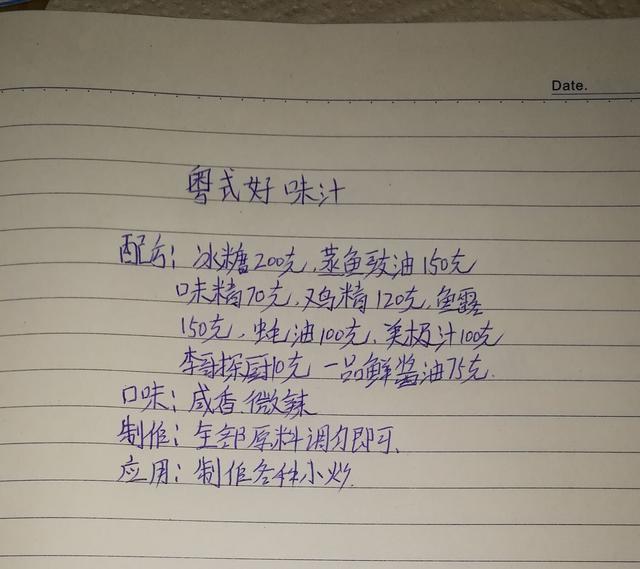 Date.
粤式好味汁
配方：冰糖200克、蒸鱼豉油150克
味精70克、鸡精120克、鱼露
150克、蚝油100克、美极汁100克
李哥探厨10克 一品鲜酱油75克.
口味：咸香.微辣
制作：全部原料调匀即可.
应用：制作各种小炒.